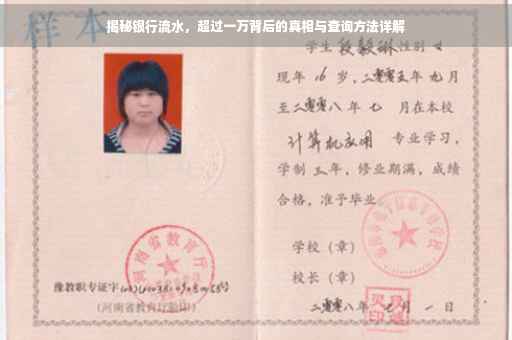 揭秘银行流水，超过一万背后的真相与查询方法详解
样本
学生 段毅琳 性别 女
现年 16 岁，二零零五年 九 月
至二零零八年 七 月在本校
计算机应用 专业学习，
学制 三 年，修业期满，成绩
合格，准予毕业
学校（章）
校长（章）
二零零八年 七 月 一 日
河南省教育厅
豫教职专证字
（河南省教育厅验印）